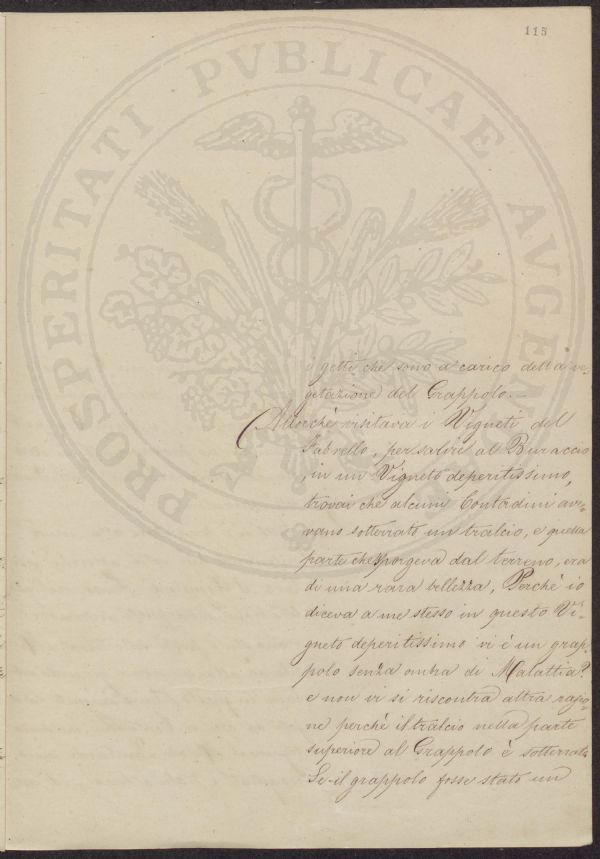 115
PROSPERITATI PVBLICAE AVGENDAE
i getti che sono a carico della ve-
getazione del Grappolo. -
Allorchè visitava i Vigneti del
Fabrello, per salire al Buraccio
, in un Vigneto deperitissimo,
trovai che alcuni Contadini ave-
vano sotterrato un tralcio, e quella
parte che sporgeva dal terreno, era
di una rara bellezza, Perchè io
diceva a me stesso in questo Vi-
gneto deperitissimo vi è un grap-
polo senza ombra di Malattia?
e non vi si riscontra altra ragio-
ne perchè il tralcio nella parte
superiore al Grappolo è sotterrato
Se il grappolo fosse stato un